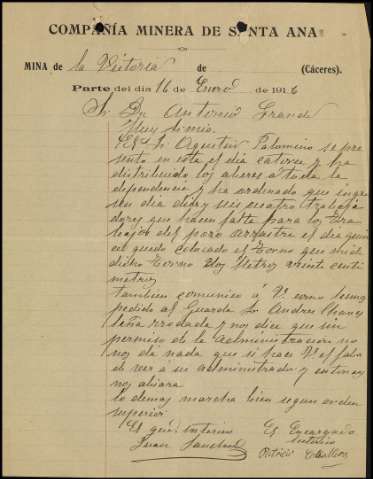 COMPAÑÍA MINERA DE SANTA ANA
MINA de la Victoria de (Cáceres).
Parte del día 16 de Enero de 1916
Sr Dn Antonio
Muy Sr mio.
El Sr Agustin Palomino se pre
sento en esta el dia catorce y ha
distribuido los aberes á toda la
dependencia y ha ordenado que
dia diez y seis cuatro trabaja
dores que hacen falta para los tra
bajos del pozo arrastre el dia quin
ce quedo colocado el torno que mide
dicho torno dos Metros veinte centi
metros
tambien comunico á V. como tengo
pedido al Guarda Dn Andres
leña rrodada y nos dice que sin
permiso de la Administracion no
nos da nada que si hace V. el fabo
de ver á su administrador y entonces
nos
lo demas marcha bien segun orden
superior
Es Encargado
Juan Sanchez
Patricio